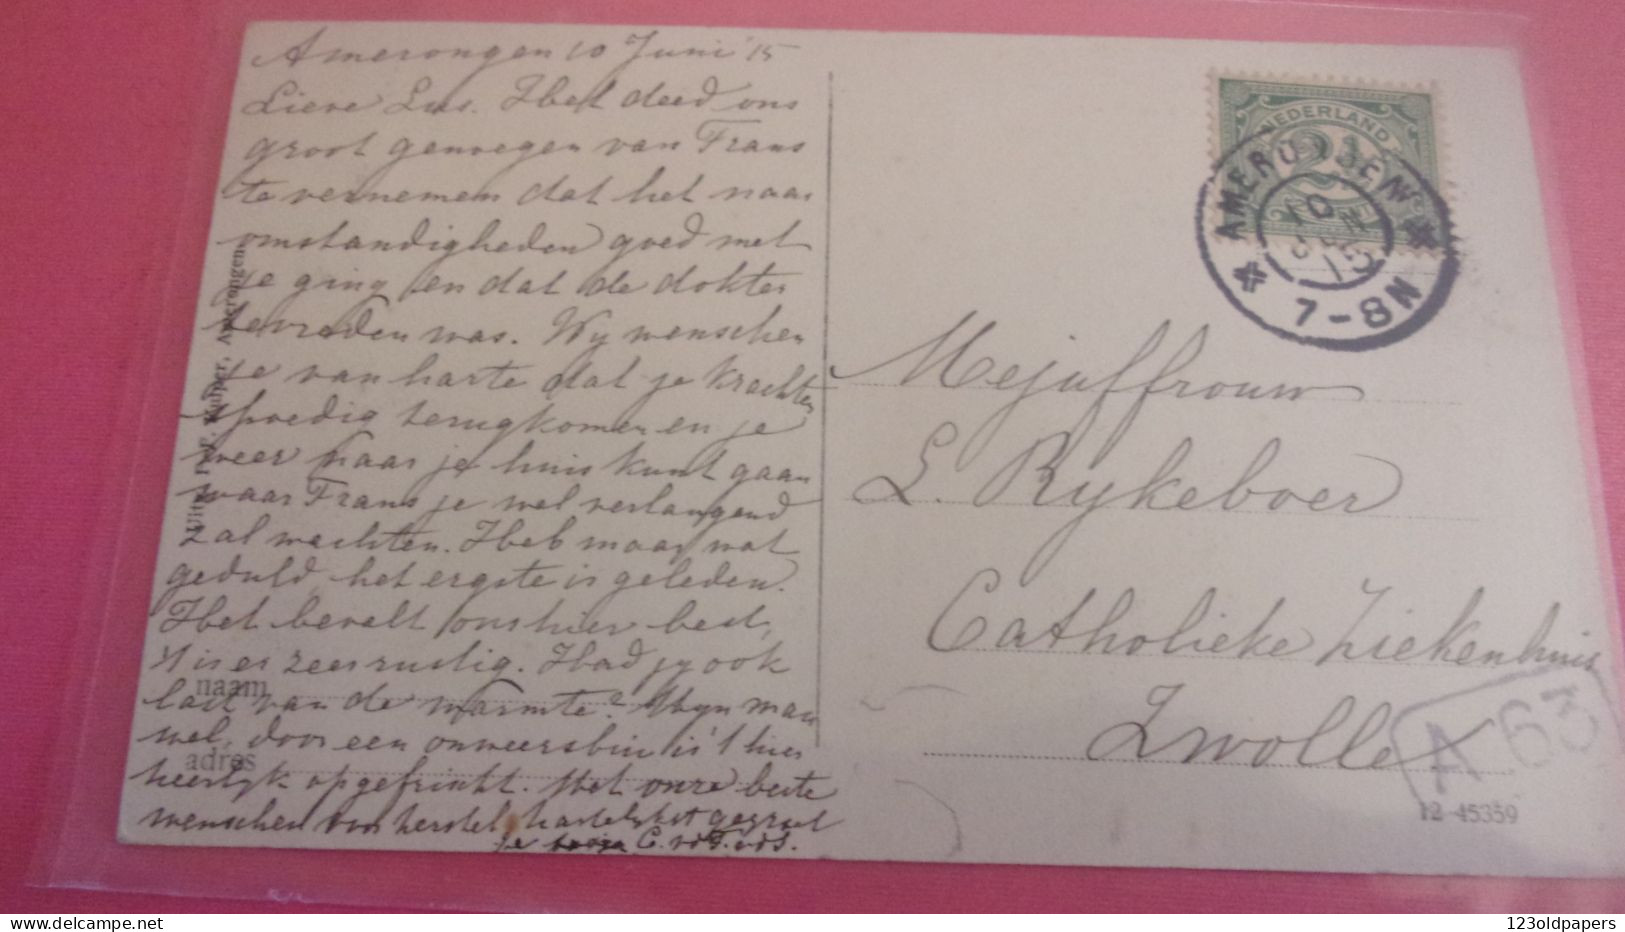 Amerongen 10 Juni '15
Lieve Lus. Het deed ons
groot genoegen van Frans
te vernemen dat het naar
omstandigheden goed met
je ging en dat de dokter
tevreden was. Wy wenschen
je van harte dat je krachten
spoedig terugkomen en je
weer naar je huis kunt gaan
waar Frans je wel verlangend
zal wachten. Heb maar wat
geduld, het ergste is geleden.
Het bevalt ons hier best,
't is er zeer rustig. Had jy ook
last van de warmte?
wel, door een onweersbui is 't hier
heerlyk opgefrischt. Met onze beste
wenschen voor herstel, hartelykst gegroet
je
naam
adres
Kuiper, Amerongen
NEDERLAND
2½
AMERONGEN
10
JUN
15
7-8N
Mejuffrouw
L. Rykeboer
Catholieke Ziekenhuis
Zwolle
A 63
12-45359
123oldpapers